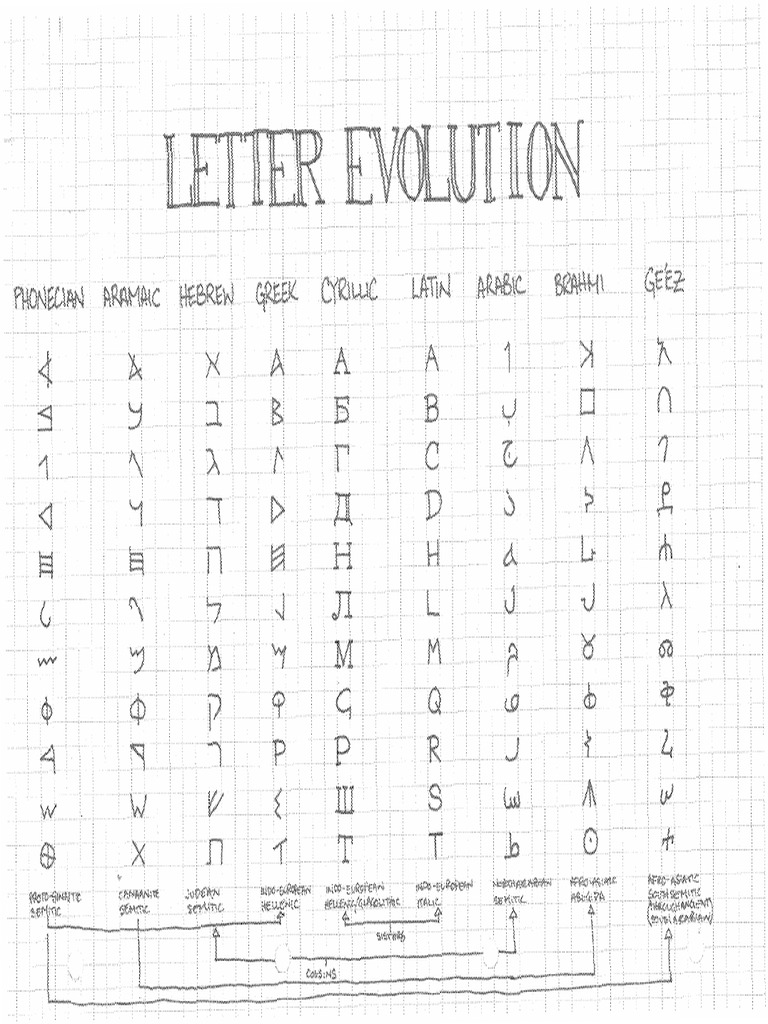 LETTER EVOLUTION
PHONECIAN ARAMAIC HEBREW GREEK CYRILLIC LATIN ARABIC BRAHMI GE'EZ
𐤀 𐡀 א Α А A ا 𑀅 አ
𐤁 𐡁 ב Β Б B ب 𑀩 በ
𐤂 𐡂 ג Λ Г C ج 𑀕 ገ
𐤃 𐡃 ד D Д D د 𑀤 ደ
𐤇 𐡇 ח Н H 𑀳 ሐ
𐤋 𐡋 ל Л L ل 𑀮 ለ
𐤌 𐡌 מ Μ М M م 𑀫 መ
𐤒 𐡒 ק Ϙ Ҁ Q و 𑀙 ቀ
𐤓 𐡓 ר Ρ Р R ر 𑀭 ረ
𐤔 𐡔 ש Σ Ш S س 𑀰 ሠ
𐤈 𐡕 ת Τ Т T ط 𑀣 ተ
PROTO-SINAITIC SEMITIC
CANAANITE SEMITIC
JUDEAN SEMITIC
INDO-EUROPEAN HELLENIC
INDO-EUROPEAN HELLENIC/GLAGOLITHIC
INDO-EUROPEAN ITALIC
NORTH ARABIAN SEMITIC
AFRO-ASIATIC ABUGIDA
AFRO-ASIATIC
SOUTH SEMITIC
THROUGH ANCIENT
(SOUTH ARABIAN)
SISTERS
COUSINS